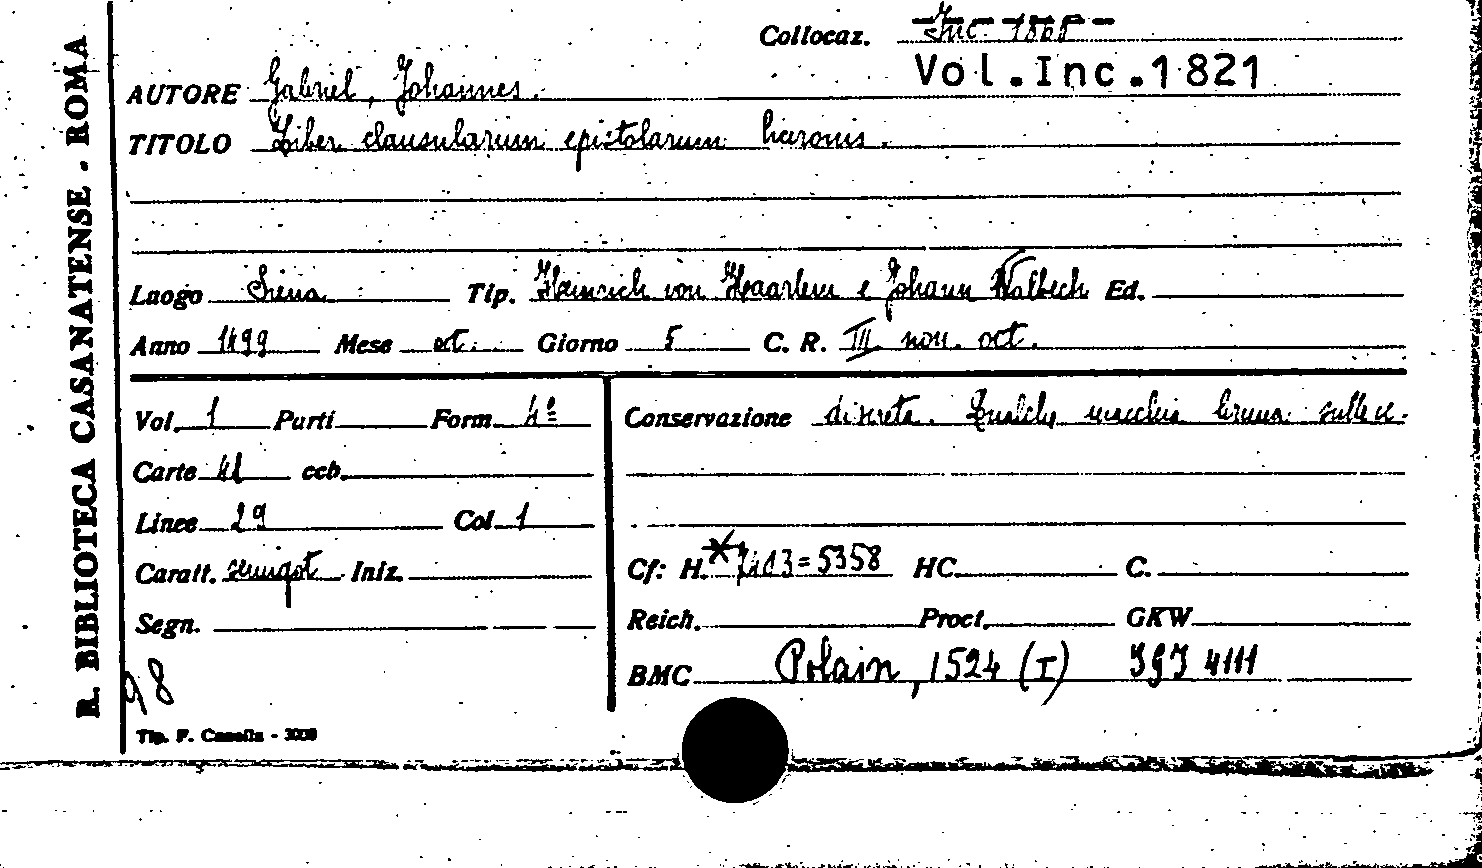 R. BIBLIOTECA CASANATENSE - ROMA
Collocaz. Inc. 1868
Vol.Inc.1821
AUTORE Gabriel, Johannes.
TITOLO Liber clausularum epistolarum
Luogo Siena Tip. Heinrich von Haarlem e Johann Walbech Ed.
Anno 1499 Mese ot. Giorno 5 C. R. III non. oct.
Vol. 1 Parti Form 4º
Carte ccb.
Linee 29 Col 1
Caratt. semigot Iniz.
Segn.
98
Conservazione discreta. Qualche macchia bruna sulle c.
Cf: H. *7413=5358 HC. C.
Reich. Proct. GKW
BMC Polain, 1524 (I) IGI 4111
Tip. F. Casella -